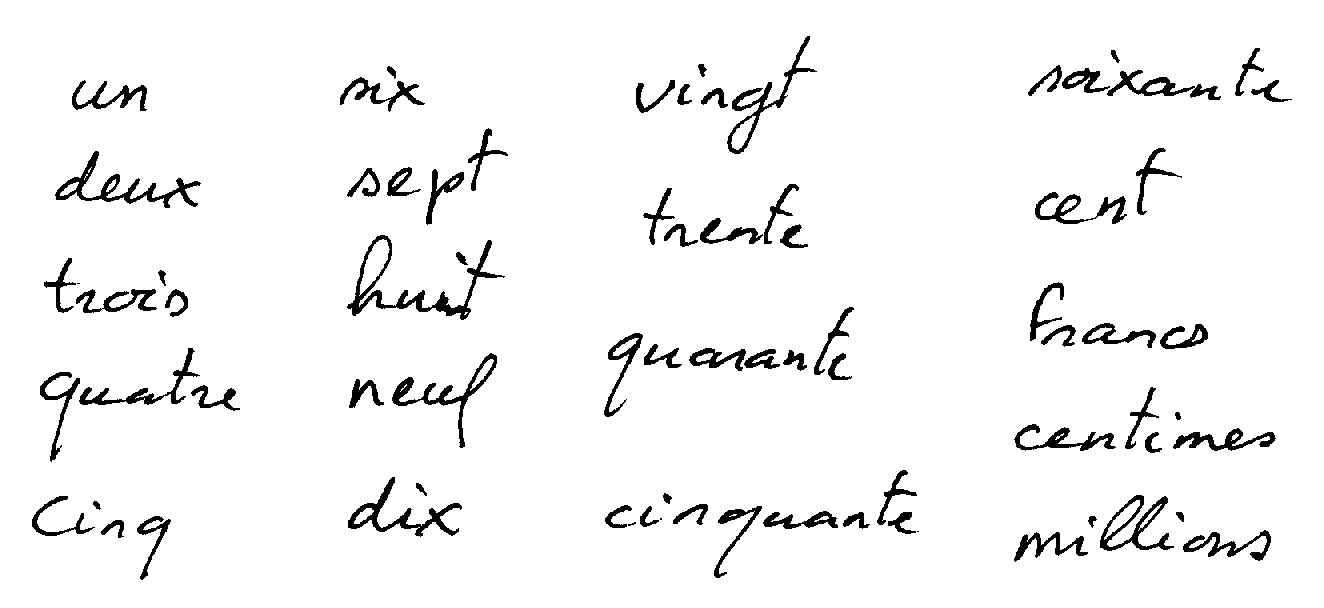 un six vingt soixante
deux sept trente cent
trois huit quarante francs
quatre neuf centimes
Cinq dix cinquante millions